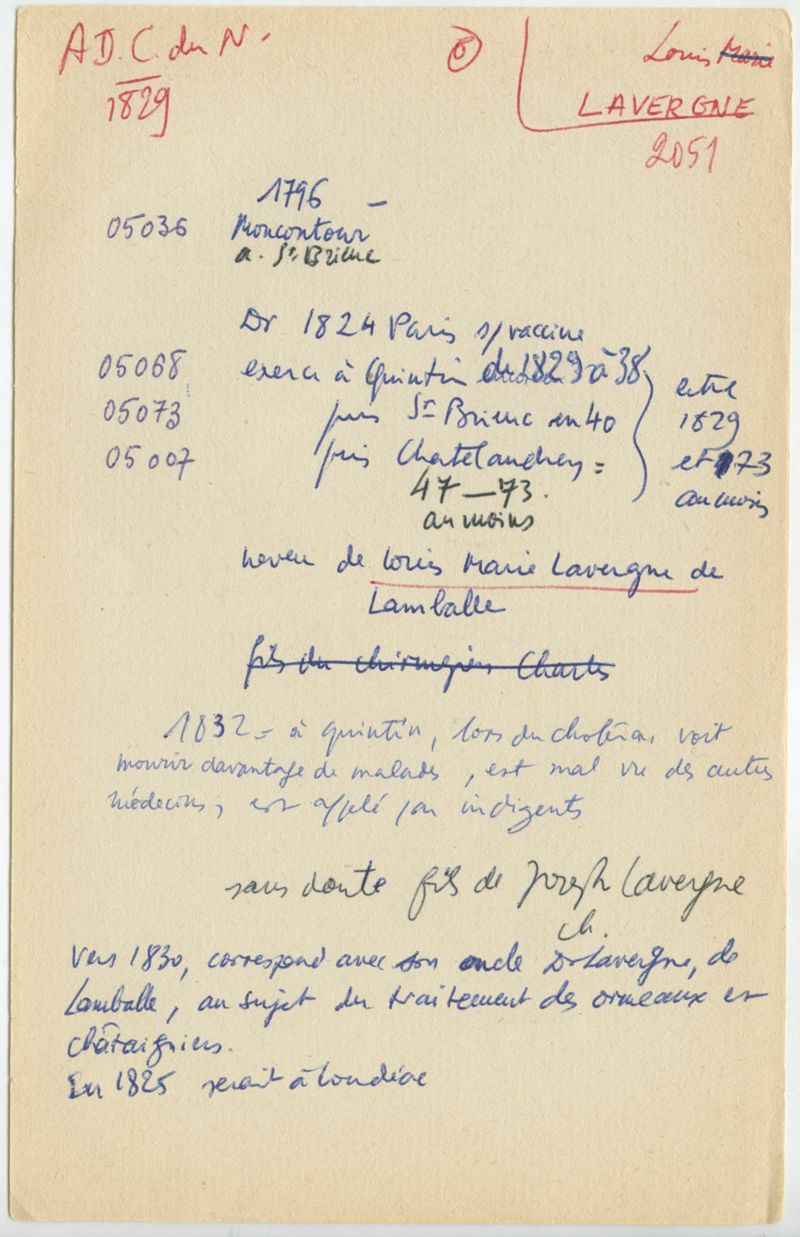 A D. C. du N.
1829
6
Louis Marie
LAVERGNE
2051
1796 –
05036 Moncontour
a. St Brieuc
Dr 1824 Paris s/vaccine
05068 exerce à Quintin de 1829 à 38
05073 puis St Brieuc en 40
05007 puis Chatelaudren =
47 – 73.
au moins
entre
1829
et 73
au moins
neveu de Louis Marie Lavergne de
Lamballe
fils du chirurgien Charles
1832 = à Quintin, lors du choléra, voit
mourir davantage de malades, est mal vu des autres
médecins, est appelé par indigents
sans doute fils de Joseph Lavergne
ch.
Vers 1830, correspond avec son oncle Dr Lavergne, de
Lamballe, au sujet du traitement des ormeaux et
châtaigniers.
En 1825 serait à Loudéac